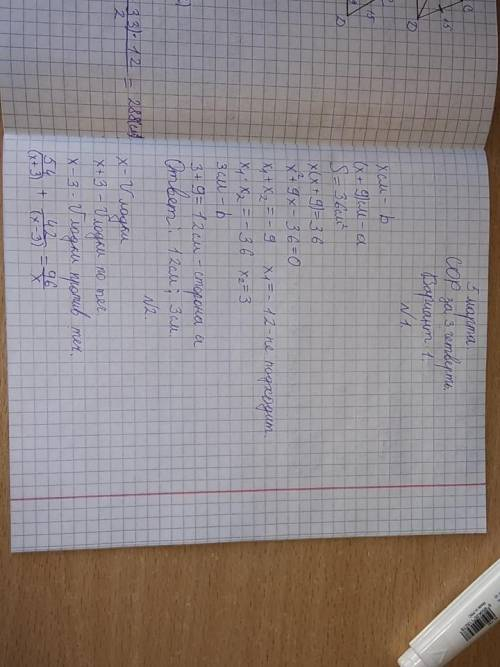 1 марта.
СОР за 3 четверть.
Вариант 1.
N1
x см - b
(x + 9) см - a
S = 36 см²
x(x + 9) = 36
x² 9x - 36 = 0
x₁ + x₂ = -9 x₁ = -12 - не подходит
x₁ · x₂ = -36 x₂ = 3
3 см - b
3 + 9 = 12 см - сторона a
Ответ: 12 см; 3 см
N2.
x - V лодки
x + 3 - V лодки по теч.
x - 3 - V лодки против теч.
54/(x+3) + 42/(x-3) = 96/x
33) · 12 / 2 = 288
D
15
D
15
C